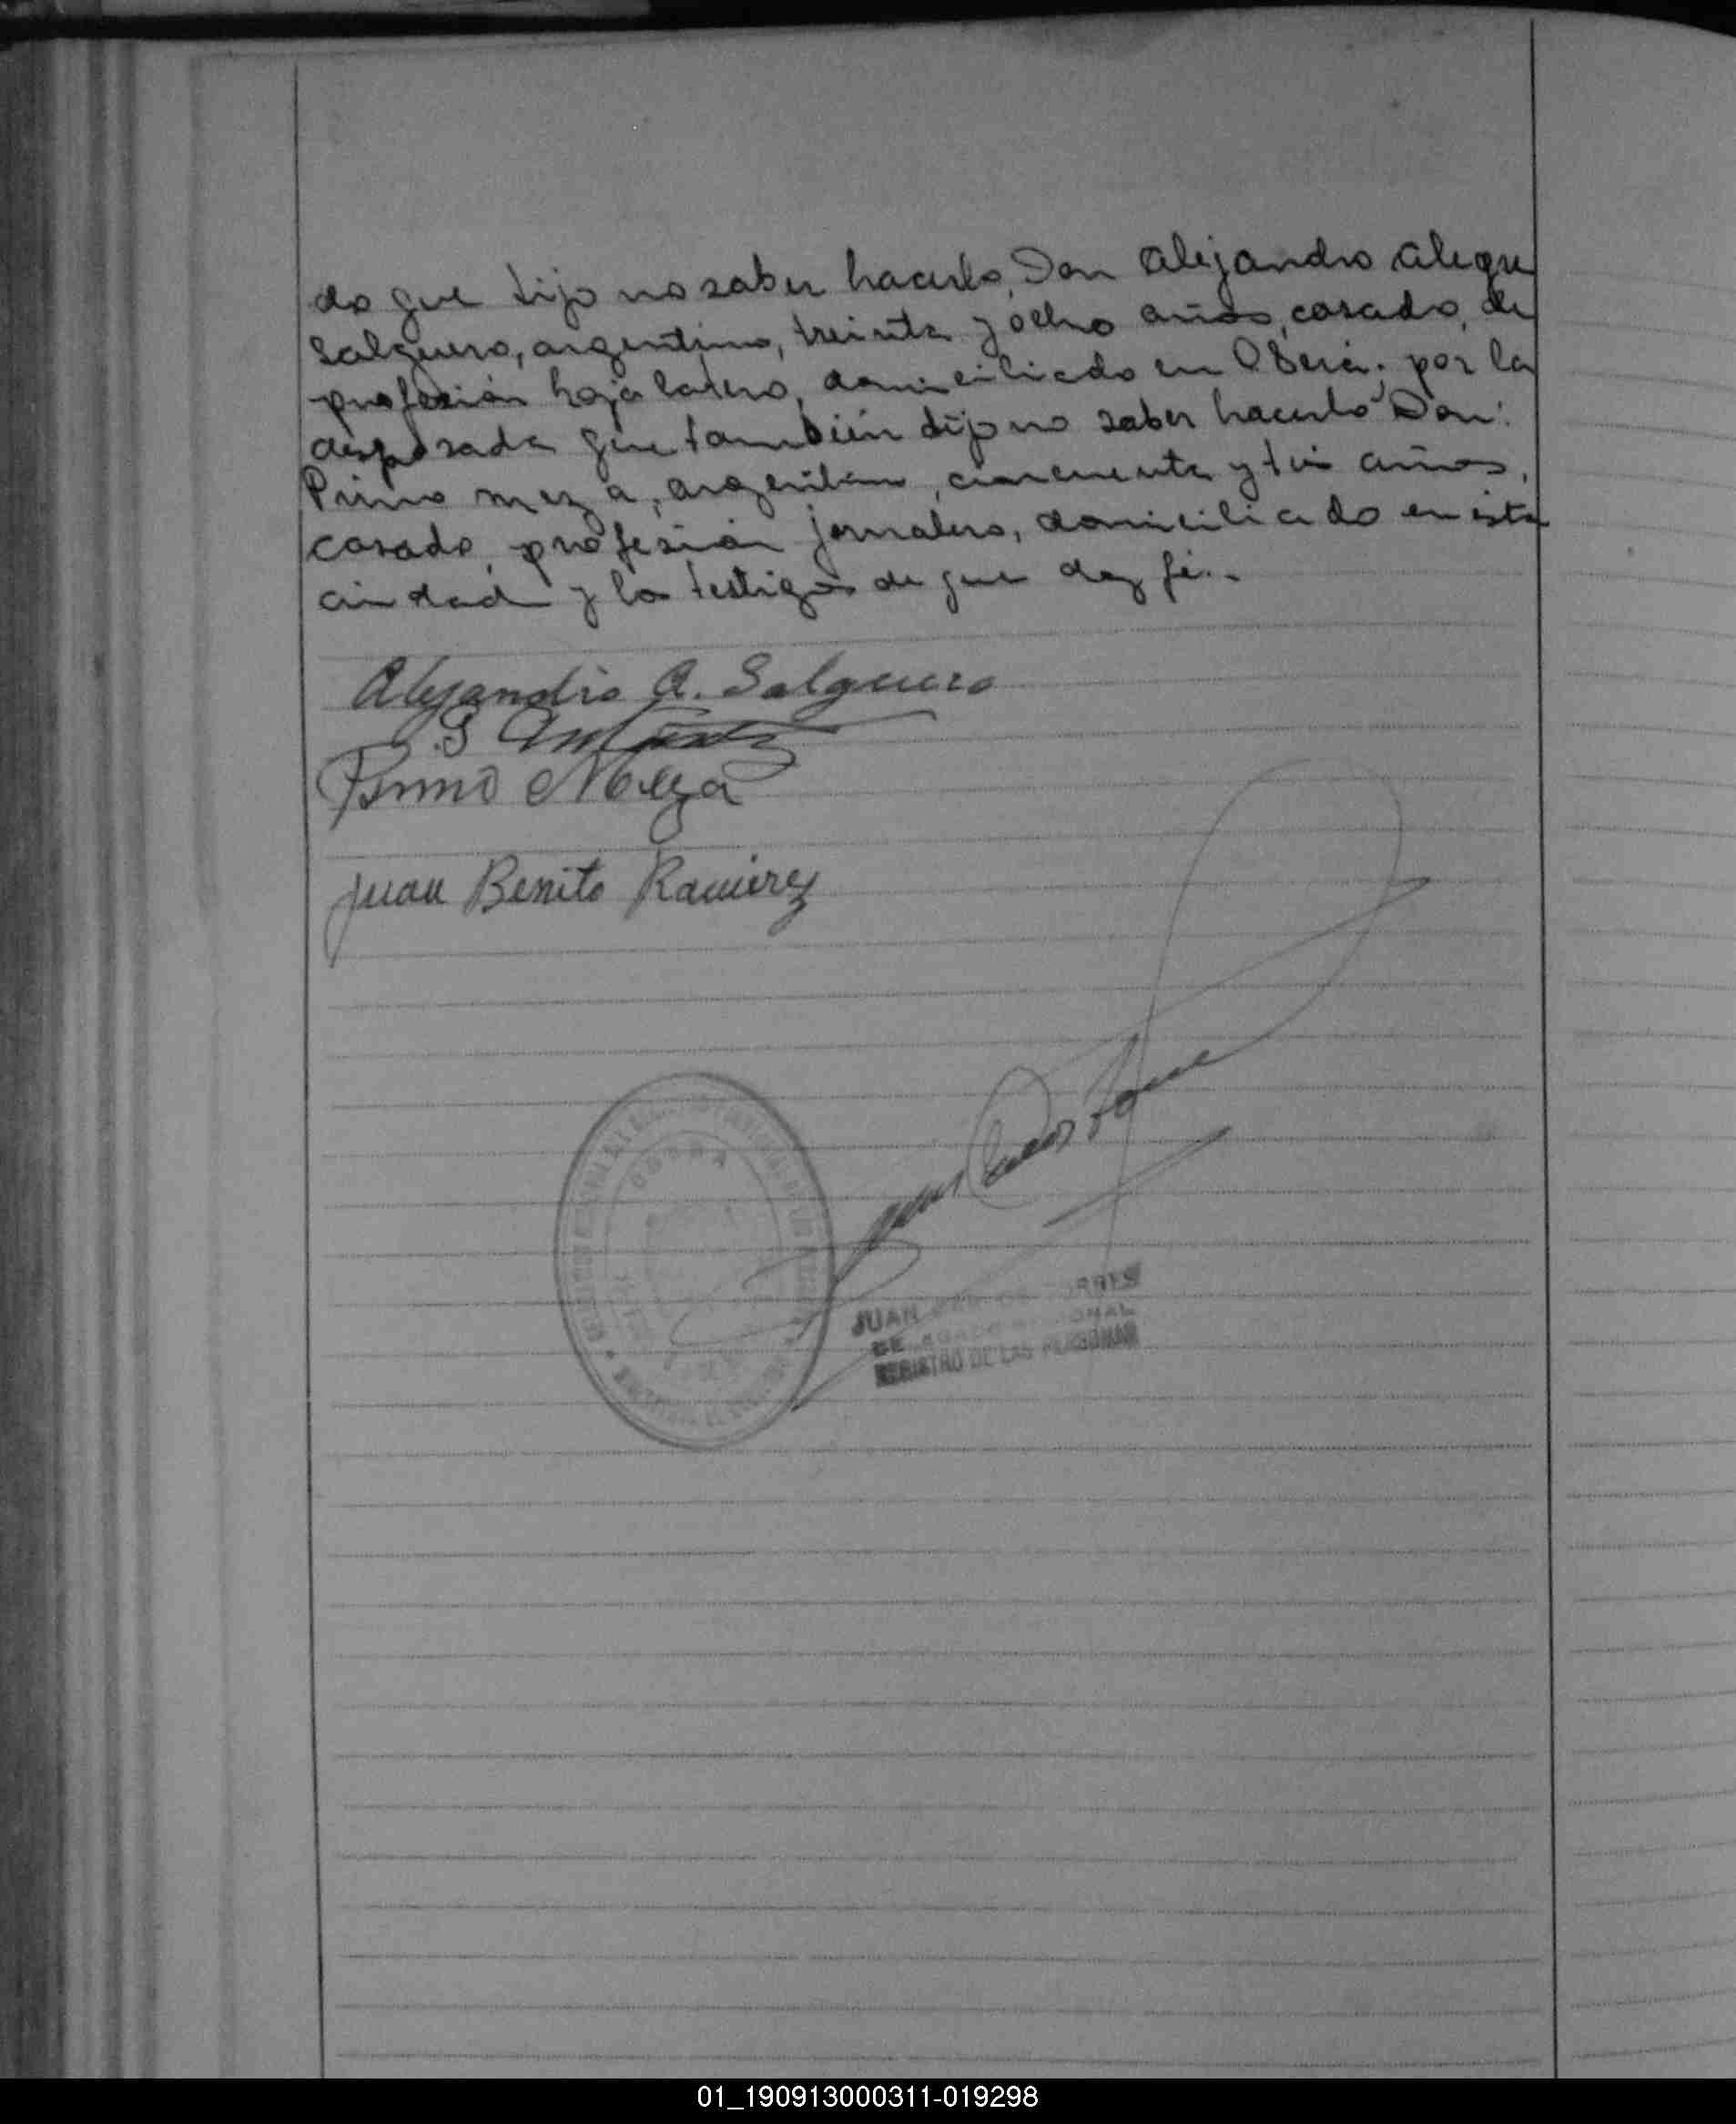 do que dijo no saber hacerlo, Don Alejandro Alegre
Salguero, argentino, treinta y ocho años, casado, de
profesión hojalatero, domiciliado en Oberá; por la
desposada que también dijo no saber hacerlo Don:
Primo Meza, argentino, cincuenta y tres años,
casado, profesión jornalero, domiciliado en ésta
ciudad y los testigos de que doy fé.-
Alejandro A. Salguero
Primo Meza
Juan Benito Ramirez
JUAN
REGISTRO DE LAS PERSONAS
01_190913000311-019298